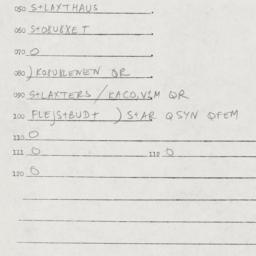 050 S+LAXTHAUS
060 S+OBUBXET
070 O
080 ) KOPUKLENEN QR
090 S+LAXTERS / KACO,VSM QR
100 FLEJS+BUD+ ) S+AR QSYN QFEM
110 O
111 O 112 O
120 O